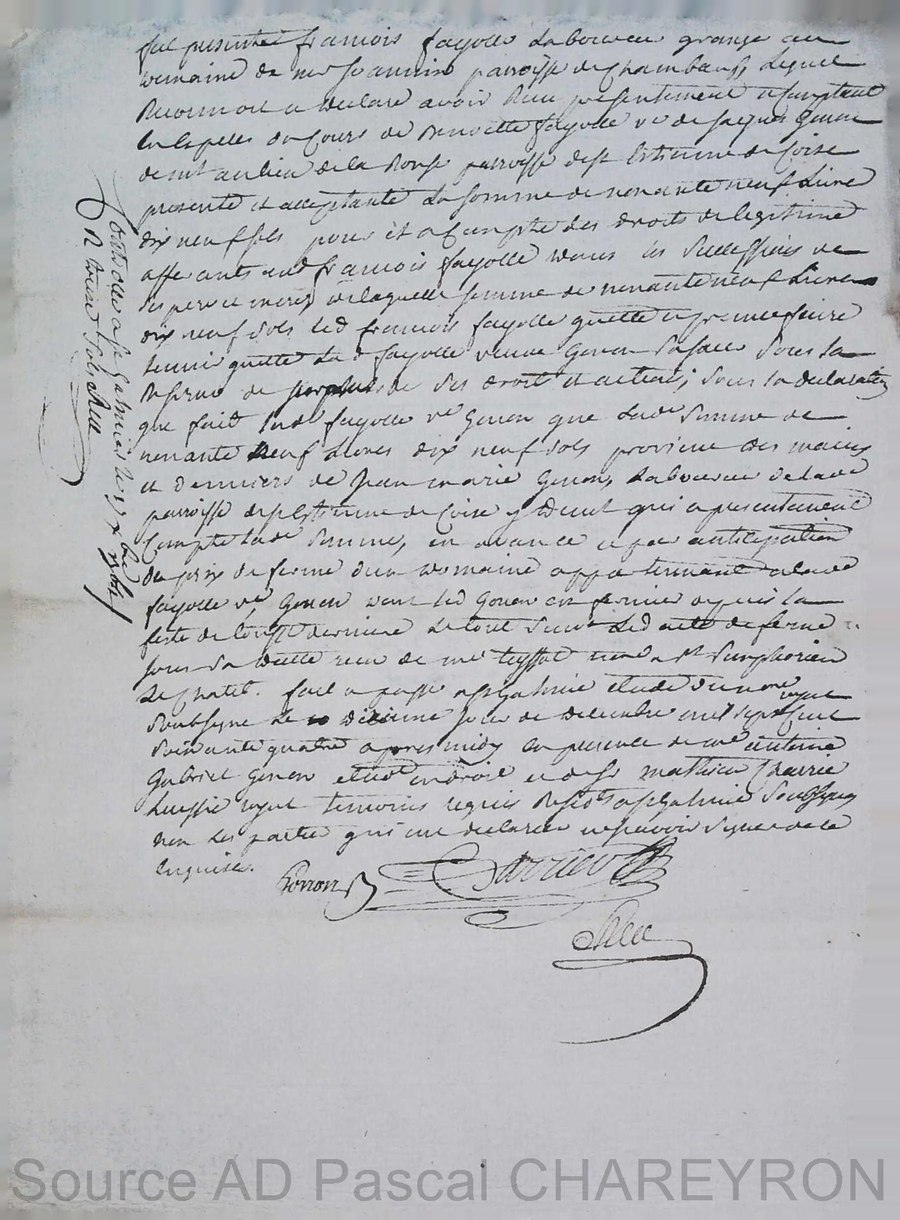 fut present francois fayolle laboureur granger au
domaine de mr parroisse de Chambeuf, lequel
a declare avoir Recu presentement comptant
en Especes du Cours de Benoitte fayolle ve de Jaques Genon
demt au lieu de la parroisse de st Estienne de Coise
presente et acceptante La somme de nonante neuf Livres
dix neuf sols pour et a Compte des droits de legitime
afferants aud francois fayolle dans les successions de
ses pere et mere, de laquelle somme de nonante neuf Livres
dix neuf sols led francois fayolle quitte et promet faire
tenir quitte lad fayolle veuve Genon sous la
Reserve de surplus de ses droit et actions, sous la declaration
que fait lad fayolle ve Genon que lade somme de
nonante neuf livres dix neuf sols provient des mains
et deniers de Jean marie Genon, Laboureur de lade
parroisse de st Estienne de Coise y demt qui a presentement
Compte lade somme, en avance et par anticipation
du prix de ferme d'un domaine appartenant a lade
fayolle ve Genon dont led Genon est fermier depuis la
feste de derniere le tout suivt led acte de ferme
sous sa datte recu de me nore a st Simphorien
le Chatel. fait et passe a st Galmier etude du nore royal
soubsigne le dixieme jour de decembre mil sept Cent
soixante quatre apres midy en presence de me antoine
Gabriel en droit et de sr mathieu Barrieu
huissier royal temoins requis Residts a st Galmier soubsignes
non les partie qui ont declarer ne scavoir signer de ce
enquises.
Ponson
Barrieu
Controlle a st Galmier le
R treize sols